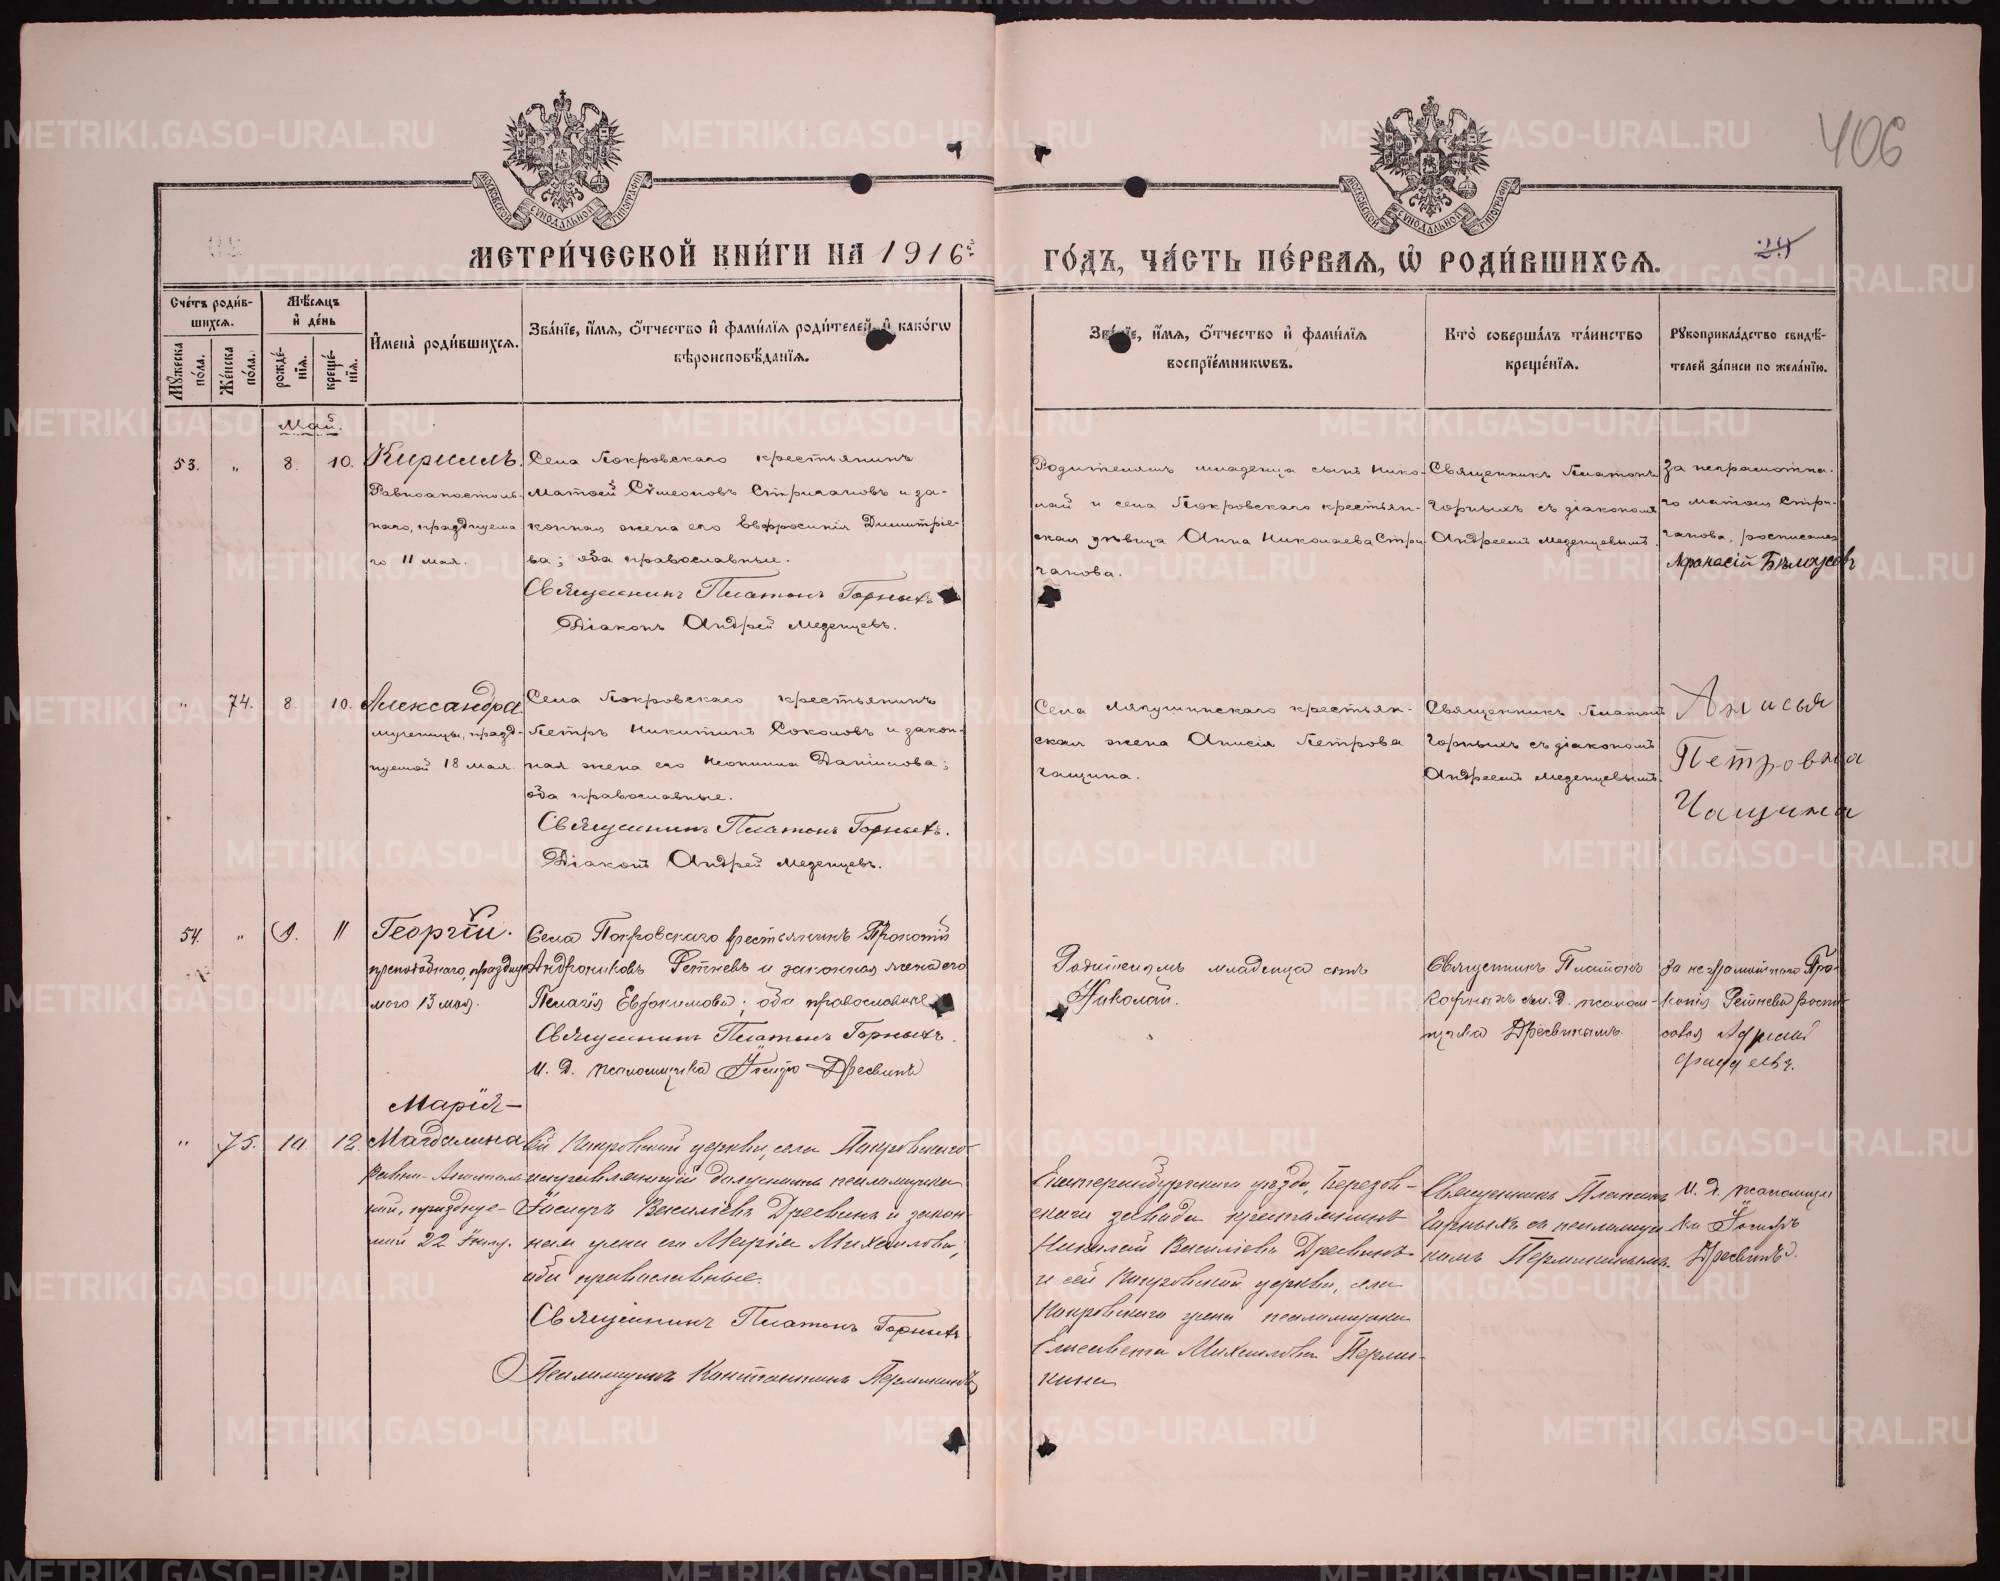 406
МЕТРИ́ЧЕСКОЙ КНИ́ГИ НА 1916 й
ГО́ДЪ, ЧА́СТЬ ПЕ́РВАЯ, Ѽ РОДИ́ВШИХСЯ.
29
Сче́тъ роди́в-
шихся.
Мѣ́сяцъ
и де́нь
Мужеска по́ла.
Же́нска по́ла.
рожде́нія.
креще́нія.
Имена̀ роди́вшихся.
Зва́ніе, и́мя, о́тчество и фами́лія роди́телей, и како́гѡ
вѣроисповѣ́данія.
Зва́ніе, и́мя, о́тчество и фами́лія
воспріе́мникѡвъ.
Кто̀ соверша́лъ та́инство
креще́нія.
Рукоприкла́дство свидѣ́-
телей за́писи по жела́нію.
Май.
53. „ 8. 10. Кириллъ.
Равноапостоль-
наго, празднуема-
го 11 мая.
Села Покровскаго крестьянинъ
Матѳей Сѵмеоновъ Стригановъ и за-
конная жена его Евфросинія Димитріе-
ва; оба православные.
Священникъ Платонъ Горныхъ
Діаконъ Андрей Меденцевъ.
Родителямъ младенца сынъ Нико-
лай и села Покровскаго крестьян-
ская дѣвица Анна Николаева Стри-
ганова.
Священникъ Платонъ
Горныхъ съ діакономъ
Андреемъ Меденцевымъ.
За неграмотна-
го Матѳея Стри-
ганова, росписался
Афонасій Бѣлоусовъ
„ 74. 8. 10. Александра
мученицы, празд-
нуемой 18 мая.
Села Покровскаго крестьянинъ
Петръ Никитинъ Соколовъ и закон-
ная жена его Неонилла Даніилова;
оба православные.
Священникъ Платонъ Горныхъ.
Діаконъ Андрей Меденцевъ.
Села Ляпушинскаго крестьян-
ская жена Анисія Петрова
Чащина.
Священникъ Платонъ
Горныхъ съ діакономъ
Андреемъ Меденцевымъ.
Анисья
Петровна
Чащина
54. „ 9. 11 Георгій.
преподобнаго, праздну-
маго 13 мая.
Села Покровскаго крестьянинъ Прокопій
Андрониковъ Ретневъ и законная жена его
Пелагія Евдокимова; оба православные
Священникъ Платонъ Горныхъ.
И. д. псаломщика Іосифъ Дресвинъ
Родителямъ младенца сынъ
Николай.
Священникъ Платонъ
Горныхъ съ и. д. псалом-
щика Дресвинымъ.
За неграмотнаго Про-
копія Ретнева роспи-
сался
„ 75. 10. 12. Марія-
Магдалина
Равно-Апостоль-
ной, праздну-
мой 22 Іюля.
Сей Покровской церкви, села Покровскаго
исправляющій должность псаломщика
Іосифъ Василіевъ Дресвинъ и закон-
ная жена его Марія Михаилова;
оба православные.
Священникъ Платонъ Горныхъ
Псаломщикъ Константинъ Пермикинъ
Екатеринбургскаго уѣзда, Березов-
скаго завода крестьянинъ
Николай Василіевъ Дресвинъ
и сей Покровской церкви, села
Покровскаго жена псаломщика
Елисавета Михаилова Перми-
кина
Священникъ Платонъ
Горныхъ съ псаломщи-
комъ Пермикинымъ.
И. д. псаломщи-
ка Іосифъ
Дресвинъ.